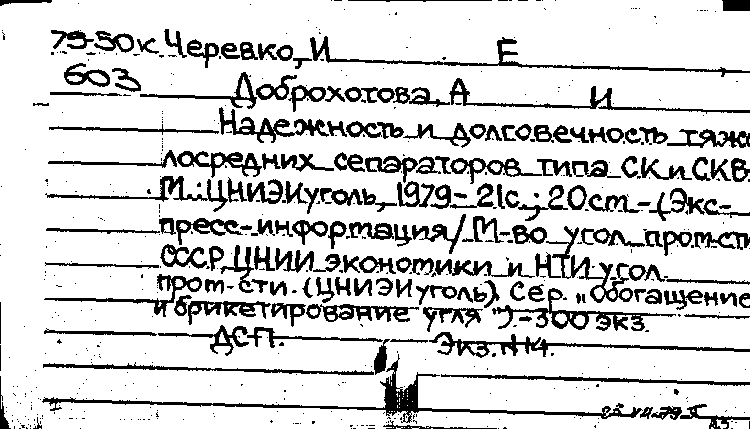 79-50к Черевко, И Е
603 Доброхотова, А И
Надежность и долговечность тяже
лосредних сепараторов типа СК и СКВ.
М.: ЦНИЭИуголь, 1979.- 21с.; 20cm.-(Экс-
пресс-информация/М-во угол. пром-сти
СССР, ЦНИИ экономики и НТИ угол.
пром-сти. (ЦНИЭИуголь). Сер. „Обогащение
и брикетирование угля").-300 экз.
ДСП. Экз. №14.